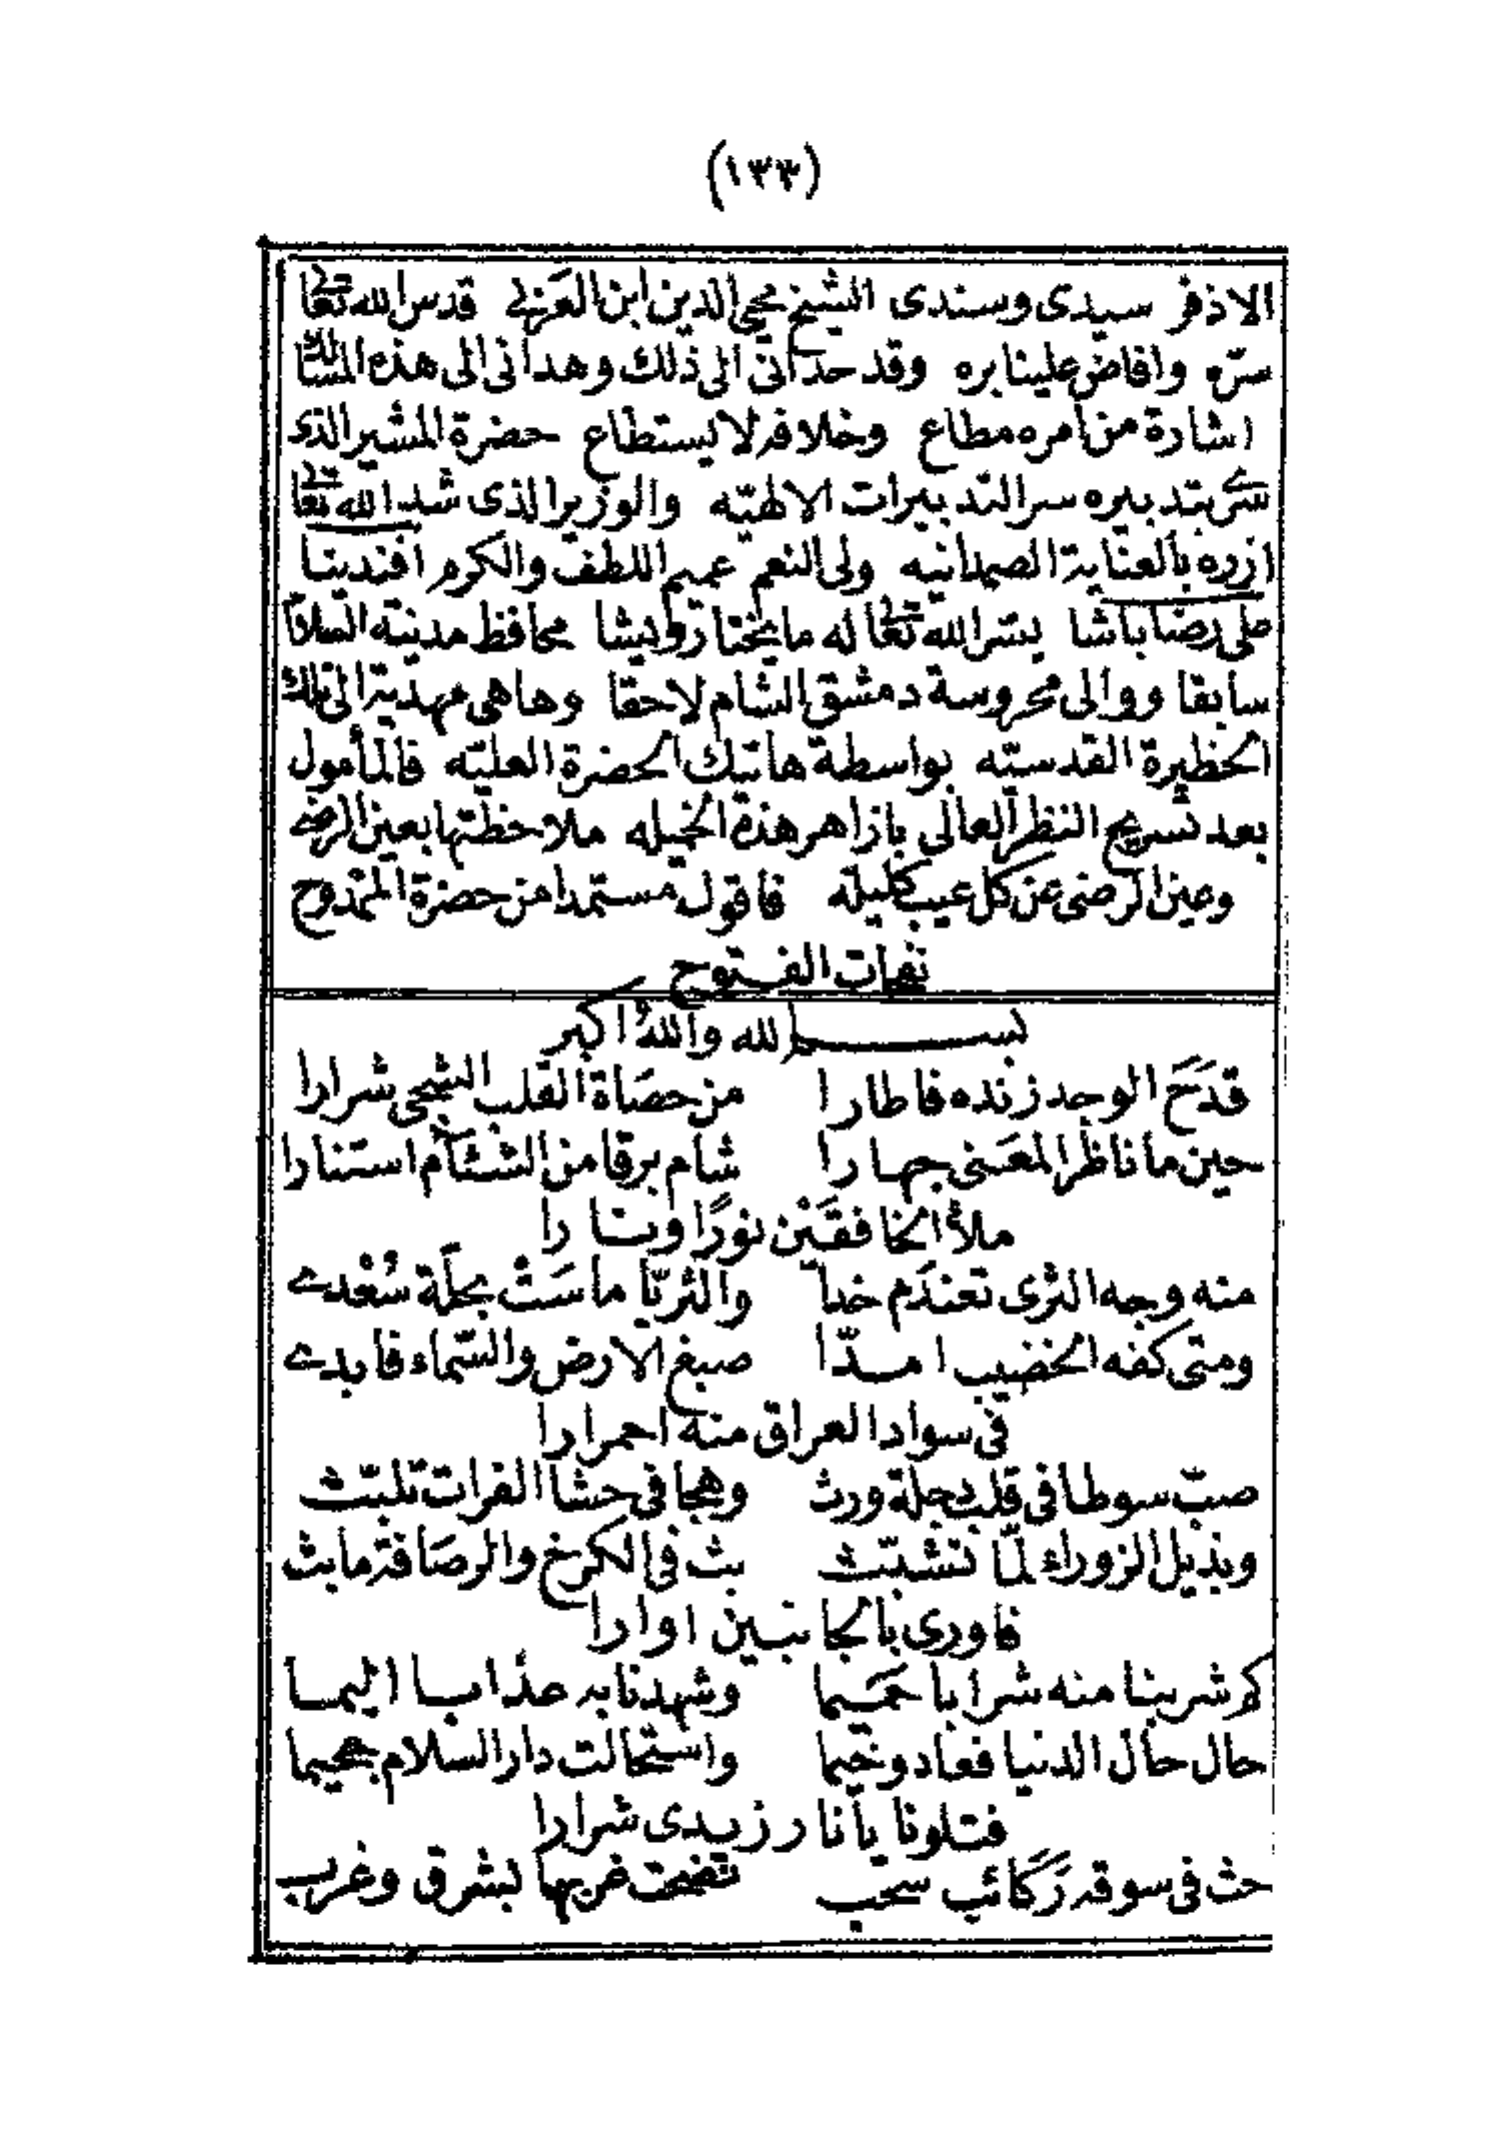 (١٣٣)
الاذفر سيدى وسندى الشيخ محيى الدين ابن العَربى قدس الله تعالى
سرّه وافاض علينا بره وقد حدانى الى ذلك وهدانى الى هذه المسالك
اشارة من امره مطاع وخلافه لا يستطاع حضرة المشير الذى
سرى بتدبيره سر التدبيرات الالهيّه والوزير الذى شد الله تعالى
ازره بالعناية الصمدانيه ولى النعم عميم اللطف والكرم افندينا
على رضا باشا يسر الله تعالى له ما يختار ويشا محافظ مدينة السلام
سابقا ووالى محروسة دمشق الشام لاحقا وها هى مهديّة الى تلك
الحظيرة القدسيّه بواسطة هاتيك الحضرة العليّه فالمأمول
بعد تسريح النظر العالى بازاهر هذه الخميله ملاحظتها بعين الرضى
وعين الرضى عن كل عيب كليله فاقول مستمدا من حضرة الممدوح
نفحات الفتوح
بسم الله واللهُ اكبر
قدَحَ الوجد زنده فاطارا من حصَاة القلب الشجى شرارا
حين ما ناظر المعَنى جهارا شام برقا من الشئآم استنارا
ملأ الخافقَيْن نورًا ونارا
منه وجه الثرى تعندَم خدا والثريّا ماسَتْ بحلّة سُعْدى
ومتى كفه الخضيب امدّا صبغ الارض والسّماء فابدى
فى سواد العراق منه احمرارا
صبّ سوطا فى قلب دجلة ورث وهجا فى حشا الفرات تلبّث
وبذيل الزوراء لمّا تشبّث بث فى الكرخ والرصَافة ما بث
فاورى بالجانبين اوارا
كم شربنا منه شرابا حَميما وشهدنا به عذابا اليما
حال حال الدنيا فعاد وخيما واستحالت دار السلام جحيما
فتلونا يا نار زيدى شرارا
حث فى سوقه رَكائب سحب تضحت غربها بشرق وغرب